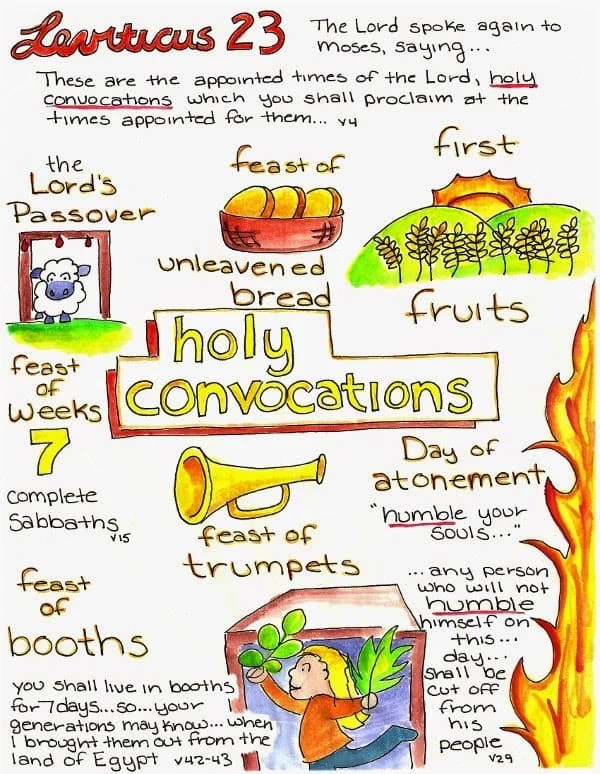 Leviticus 23
The Lord spoke again to
Moses, saying...
These are the appointed times of the Lord, holy
convocations which you shall proclaim at the
times appointed for them... v4
the
Lord's
Passover
feast of
unleavened
bread
first
fruits
holy
convocations
feast
of
weeks
7
complete
Sabbaths
v15
feast of
trumpets
Day of
atonement
"humble your
souls..."
...any person
who will not
humble
himself on
this...
day...
shall be
cut off
from
his
people
v29
feast
of
booths
you shall live in booths
for 7 days...so...your
generations may know...when
I brought them out from the
land of Egypt v42-43